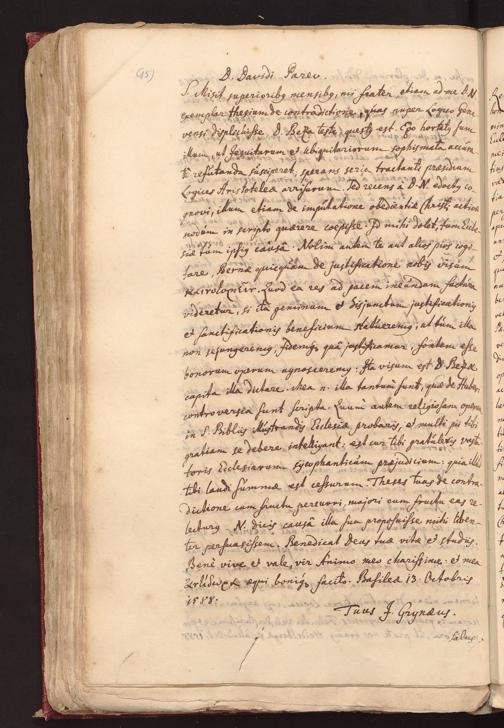 (95)
D. Davidi Pareo.
S. Misit superioribq mensibq, mi frater, etiam ad me D. N.
exemplar thesium de contradictione, quas nuper Logico Gene-
vensi displicuisse. D. Beza teste, questq est. Ego hortatq sum
illum, ut Jesuitarum et Ubiquitariorum sophismata accura-
tè refutanda susciperet, sperans seria tractanti præsidium
Logices Aristoteleæ arrisurum. Sed recens à D. N. edoctq co-
gnovi, illum etiam de imputatione obedientiæ Christi activæ
nodum in scripto quærere coepisse. Id mihi dolet, tum Eccle-
siæ tum ipsiq causâ. Nolim autem te aut alios pios cogi-
tare, Bernæ quicquam de justificatione nobis visum
Quod ea res ad pacem ineundam facture
videretur, si ita geminum et disjunctum justificationis
et sanctificationis beneficium statueremq, ut tùm illa
non sejungeremq, fidemq, quâ justificamur, fontem esse
bonorum operum agnosceremq. Ita visum est D. Bezæ
capita illa dictare. Mea n. illa tantùm sunt, quæ de Huberi
controversia sunt scripta. Quum autem religiosam operam
in S. Biblis illustrandis Ecclesiæ probaris, et multi pii tibi
gratiam se debere, intelligant: est cur tibi gratuleris vest-
toris Ecclesiarum sycophanticum præjudicium: quia illud
tibi laudi summæ est cessurum. Theses tuas de contra-
dictione cum fructu percurri, majori cum fructu eas re-
lecturq. N. dicis causâ illa sua proposuisse mihi liben-
ter persuasissem. Benedicat Deus tuæ vitæ et studiis.
Benè vive et vale, vir Animo meo charissime: et mea
æqui boniq facito. Basileæ 13. Octobris
1588.
Tuus J. Grynæus.